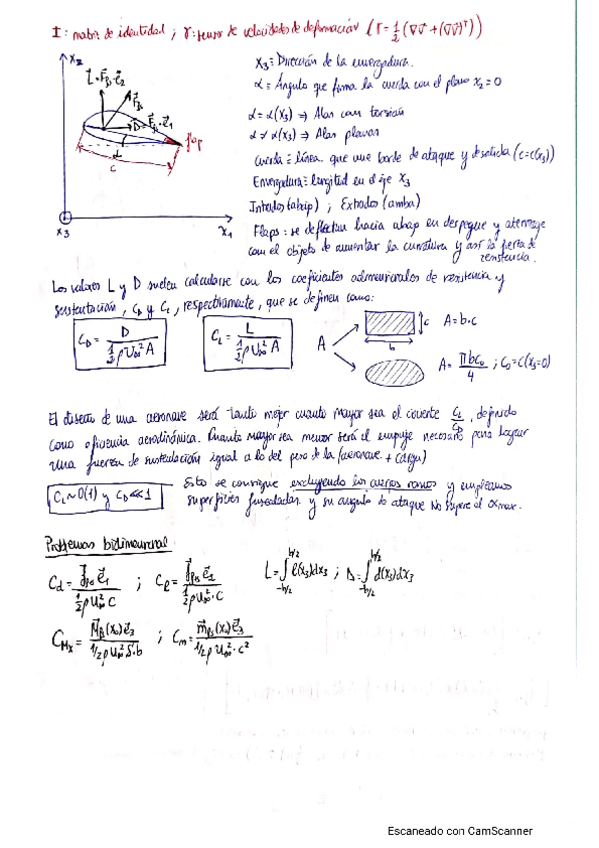 I: matriz de identidad ; γ: tensor de velocidades de deformación (γ = 1/2 (∇v + (∇v)ᵀ))
x₂
L = F_B · e₂
F_B
D = F_B · e₁
flap
α
c
x₃
x₁
x₃ ≡ Dirección de la envergadura.
α = Ángulo que forma la cuerda con el plano x₂ = 0
α = α(x₃) ⇒ Alas con torsión
α ≠ α(x₃) ⇒ Alas planas
Cuerda ≡ línea que une borde de ataque y de salida (c = c(x₃))
Envergadura ≡ longitud en el eje x₃
Intradós (abajo) ; Extradós (arriba)
Flaps: se deflectan hacia abajo en despegue y aterrizaje
con el objeto de aumentar la curvatura y así la de
Los valores L y D suelen calcularse con los coeficientes adimensionales de resistencia y
sustentación, C_D y C_L, respectivamente, que se definen como:
C_D = D / (1/2 ρ U∞² A)
C_L = L / (1/2 ρ U∞² A)
A
c
b
A = b·c
A = πbC₀/4 ; C₀ = C(x₃=0)
El diseño de una aeronave será tanto mejor cuanto mayor sea el cociente C_L/C_D, definido
como eficiencia aerodinámica. Cuanto mayor sea menor será el empuje necesario para lograr
una fuerza de sustentación igual a la del peso de la (aeronave + carga)
C_L ~ O(1) y C_D ≪ 1
Esto se consigue excluyendo los cuerpos romos y empleamos
superficies fuseladas y su ángulo de ataque no supere el αmax.
Problemas bidimensional
C_d = f_B · e₁ / (1/2 ρ U∞² · c) ; C_l = f_B · e₂ / (1/2 ρ U∞² · c)
L = ∫_{-b/2}^{b/2} l(x₃)dx₃ ; D = ∫_{-b/2}^{b/2} d(x₃)dx₃
C_Mx = M_B(x₀)e₃ / (1/2 ρ U∞² S·b) ; C_m = m_B(x₀)e₃ / (1/2 ρ U∞² · c²)
Escaneado con CamScanner